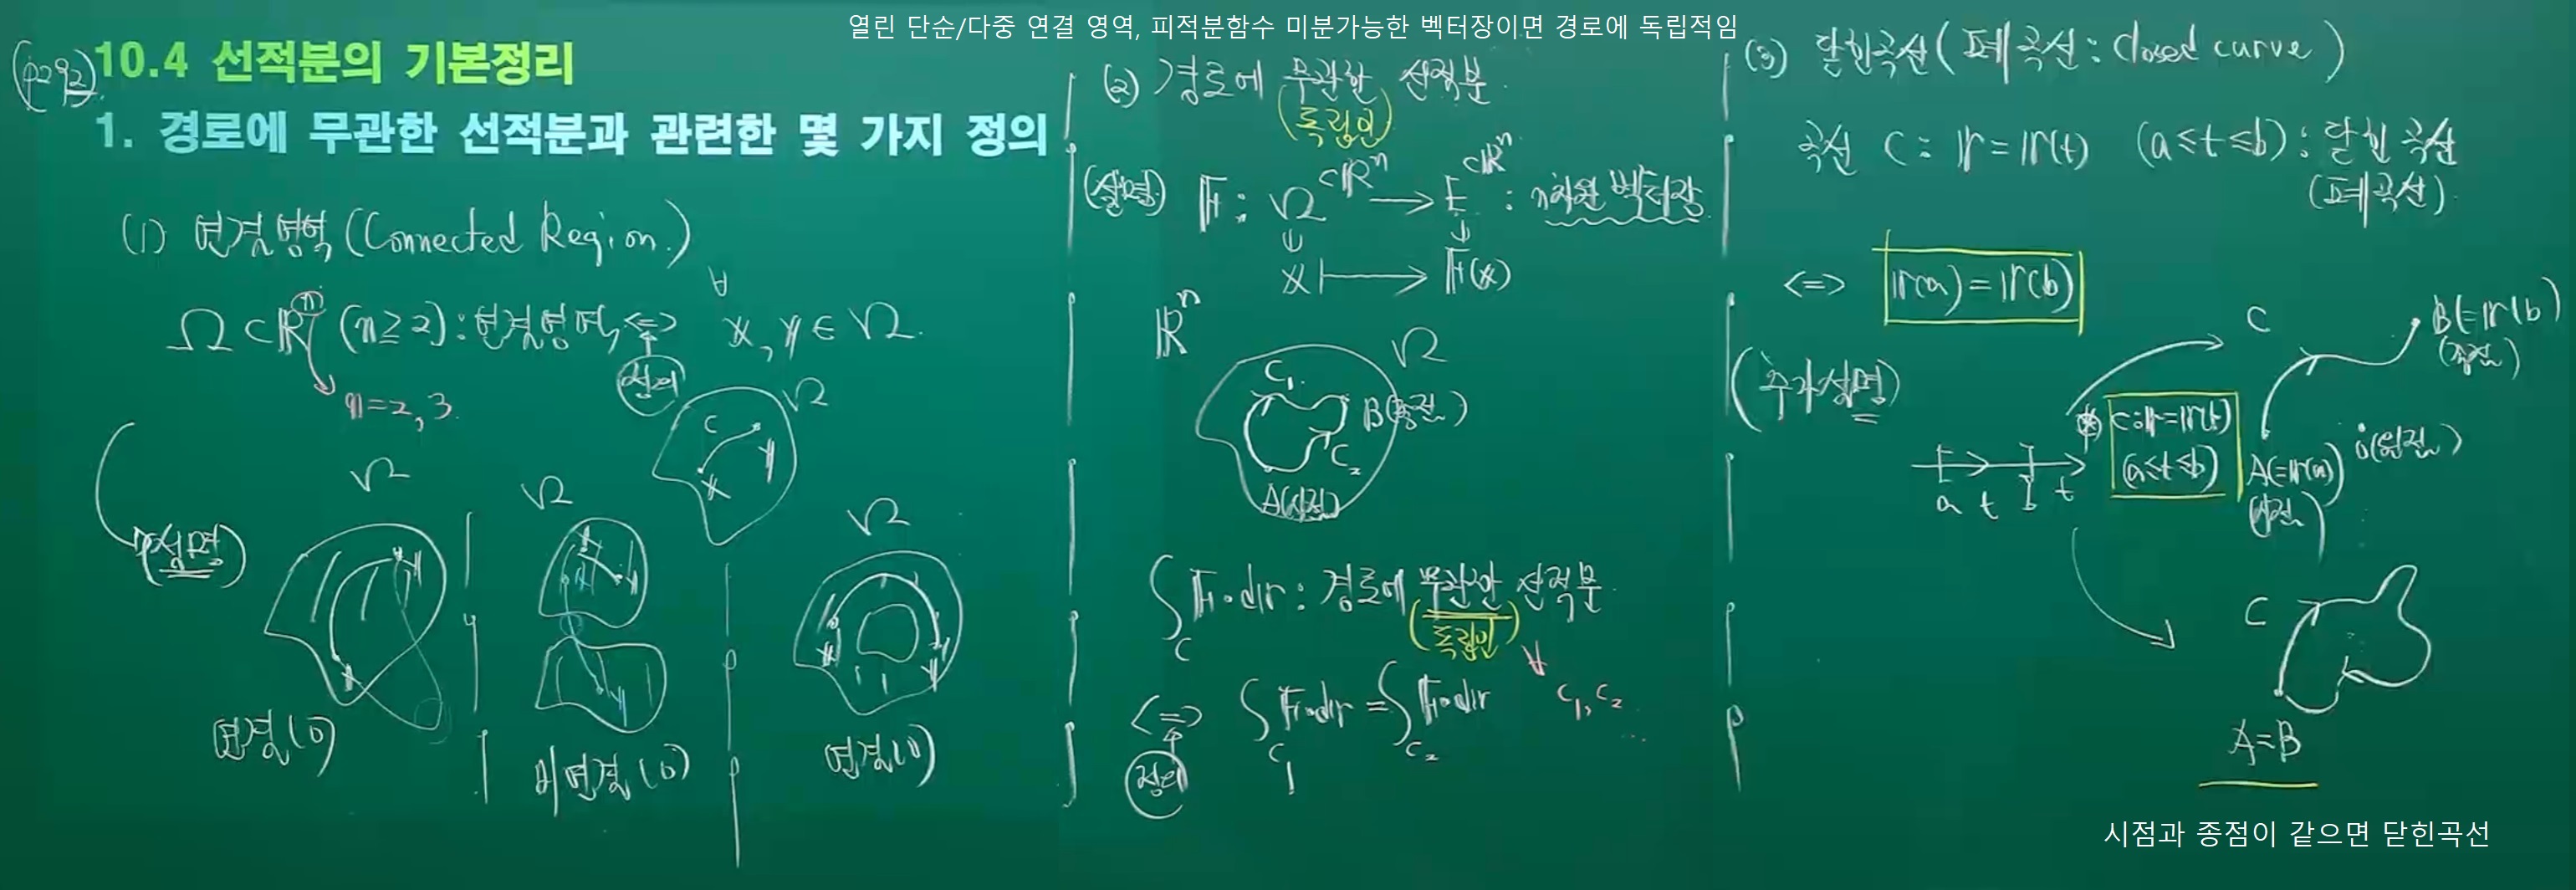 열린 단순/다중 연결 영역, 피적분함수 미분가능한 벡터장이면 경로에 독립적임
(p292)
10.4 선적분의 기본정리
1. 경로에 무관한 선적분과 관련한 몇 가지 정의
(1) 연결영역 (Connected Region.)
Ω ⊂ ℝⁿ (n ≥ 2) : 연결영역 <=> ∀ x, y ∈ Ω.
정의
n=2, 3.
Ω
C
x
y
(설명)
Ω
x
y
연결(0)
Ω
x
y
y
비연결(0)
Ω
x
y
연결(0)
(2) 경로에 무관한 선적분.
(독립인)
(설명) F : Ω ⊂ℝⁿ → E ⊂ℝⁿ : n차원 벡터장.
x ↦ F(x)
ℝⁿ
Ω
C₁
B(종점)
C₂
A(시점)
∫_C F·dr : 경로에 무관한 선적분.
(독립인)
<=> ∫_C₁ F·dr = ∫_C₂ F·dr ∀ C₁, C₂
정의
(3) 닫힌곡선 (폐곡선 : closed curve)
곡선 C : r = r(t) (a ≤ t ≤ b) : 닫힌 곡선
(폐곡선).
<=> r(a) = r(b)
(추가설명)
C
B(=r(b))
(종점)
(*) C : r = r(t)
(a ≤ t ≤ b)
a t b t
A(=r(a))
(시점)
0(원점)
C
A=B
시점과 종점이 같으면 닫힌곡선